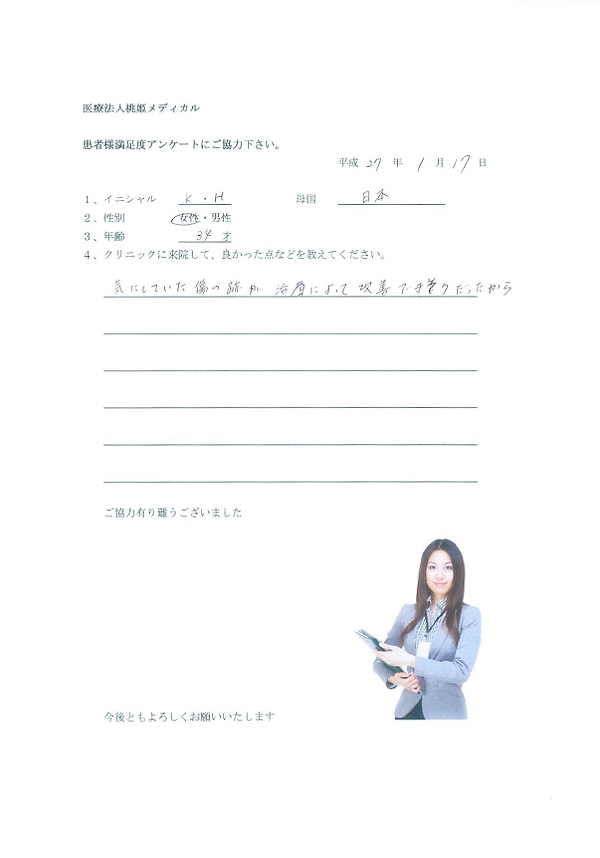 医療法人桃姫メディカル
患者様満足度アンケートにご協力下さい。
平成 27 年 1 月 17 日
1、イニシャル K・H 母国 日本
2、性別 女性・男性
3、年齢 34才
4、クリニックに来院して、良かった点などを教えてください。
気にしていた傷の跡が 治療によって 改善でき そうだったから
ご協力有り難うございました
今後ともよろしくお願いいたします